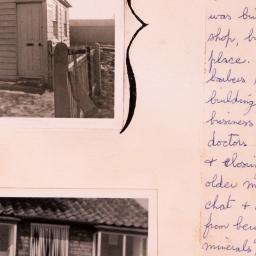 was bui
shop, bu
place.
barbers
building
business
doctors
& closin
older m
chat &
from ben
minerals